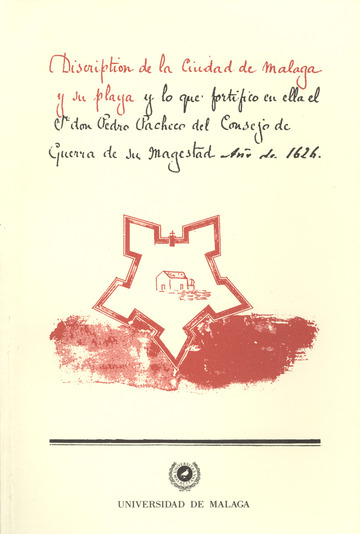 Discription de la Ciudad de Malaga
y su playa y lo que fortifico en ella el
Sr don Pedro Pacheco del Consejo de
Guerra de su Magestad Año de 1626.
UNIVERSIDAD DE MALAGA